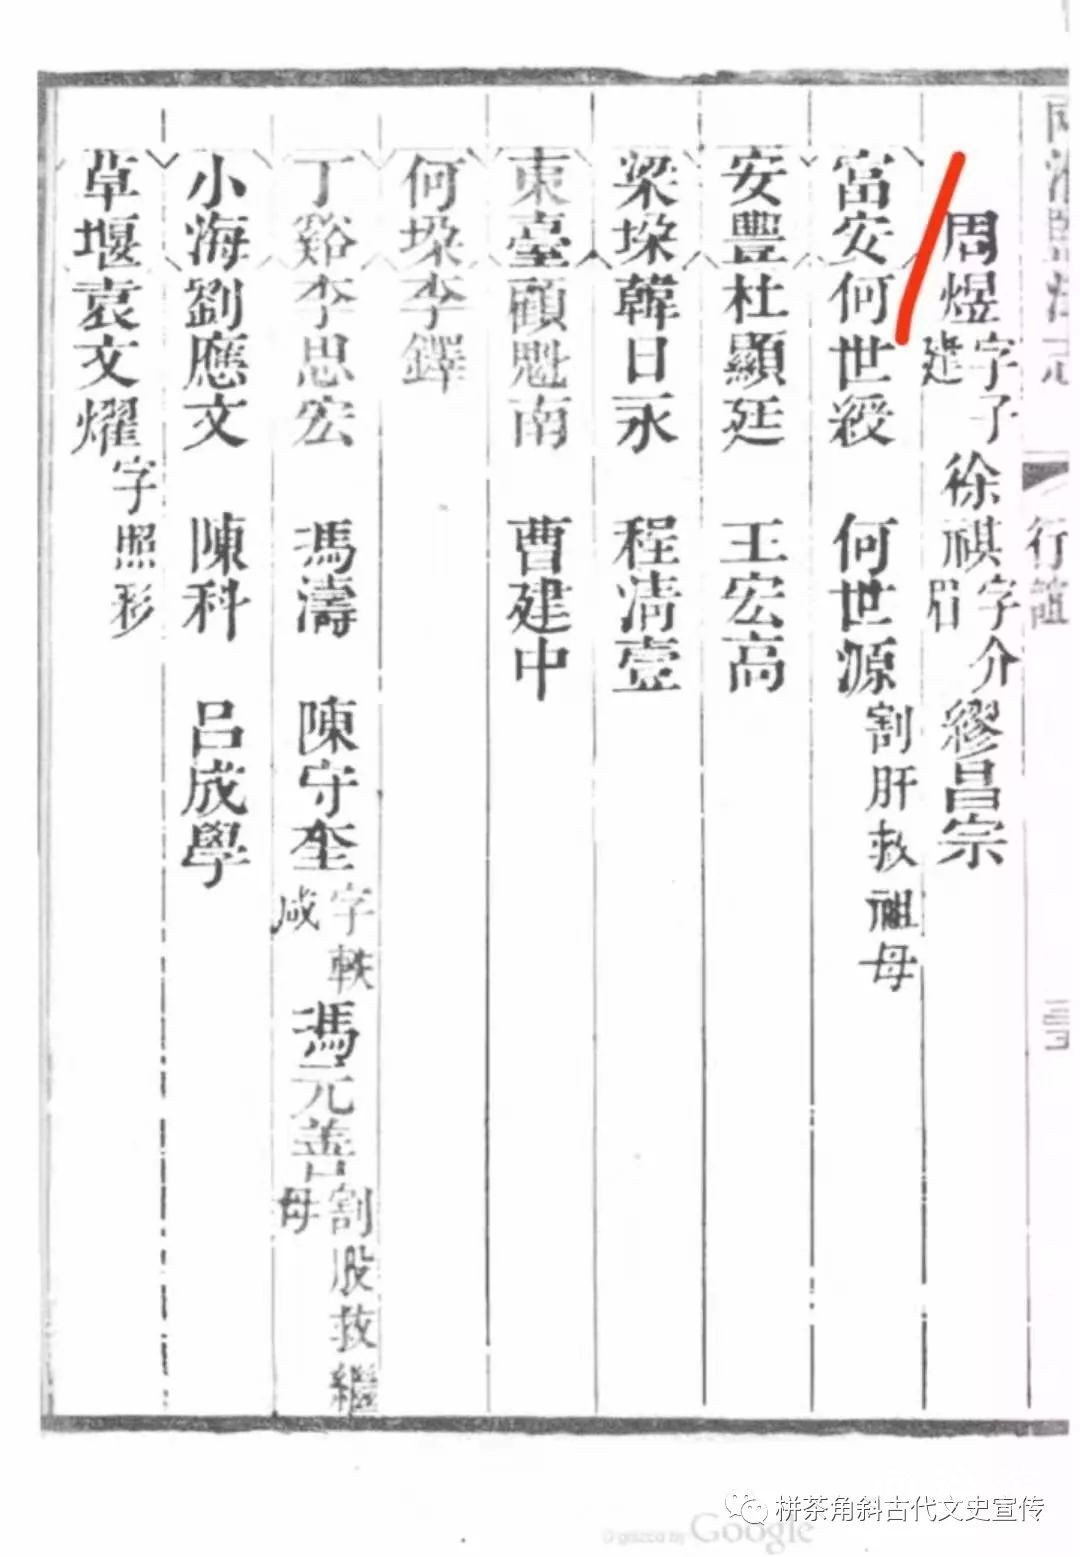 行誼
周煜字子建 徐祺字介眉 繆昌宗
富安何世綬 何世源割肝救祖母
安豐杜顯廷 王宏高
梁垛韓日永 程清壹
東臺顧魁南 曹建中
何垛李鐸
丁谿李思宏 馮濤 陳守奎字軼咸 馮元善割股救繼母
小海劉應文 陳科 呂成學
草堰袁文燿字照彩
栟茶角斜古代文史宣传
Digitized by Google